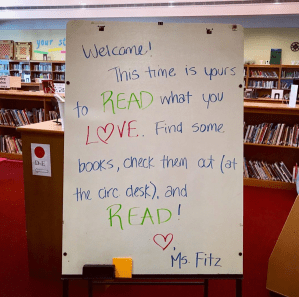 your st
Welcome!
This time is yours
to READ what you
LOVE.. Find some
books, check them out (at
the circ desk), and
READ!
Ms. Fitz